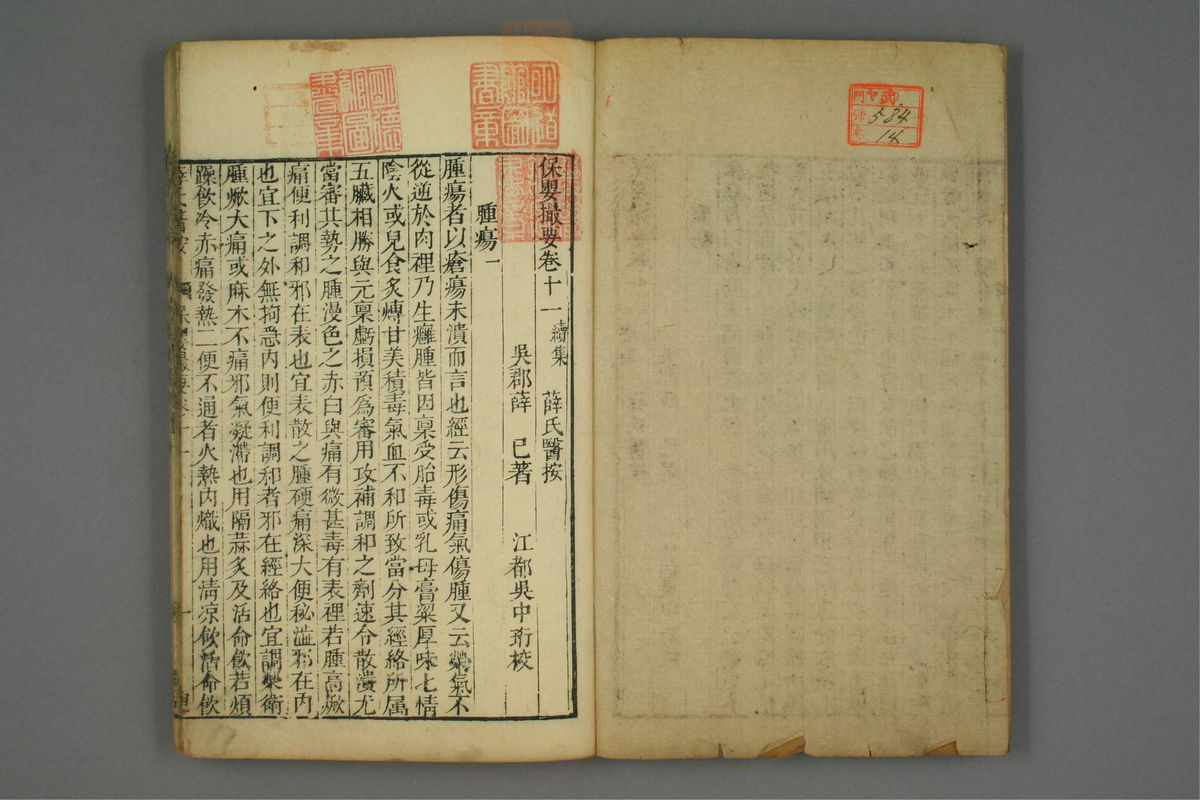 武
門
584
14
保嬰撮要卷十一 續集 薛氏醫按
吳郡薛 已著 江都吳中珩校
腫瘍一
腫瘍者以瘡瘍未潰而言也經云形傷痛氣傷腫又云榮氣不
從逆於肉裡乃生癰腫皆因稟受胎毒或乳母膏粱厚味七情
陰火或兒食炙煿甘美積毒氣血不和所致當分其經絡所属
五臟相勝與元稟虧損預爲審用攻補調和之劑速令散潰尤
當審其勢之腫漫色之赤白與痛有微甚毒有表裡若腫高焮
痛便利調和邪在表也宜表散之腫硬痛深大便秘澁邪在内
也宜下之外無拘急内則便利調和者邪在經絡也宜調榮衛
腫焮大痛或麻木不痛邪氣凝滯也用隔蒜炙及活命飲若煩
躁飲冷赤痛發熱二便不通者火熱内熾也用清凉飲活命飲